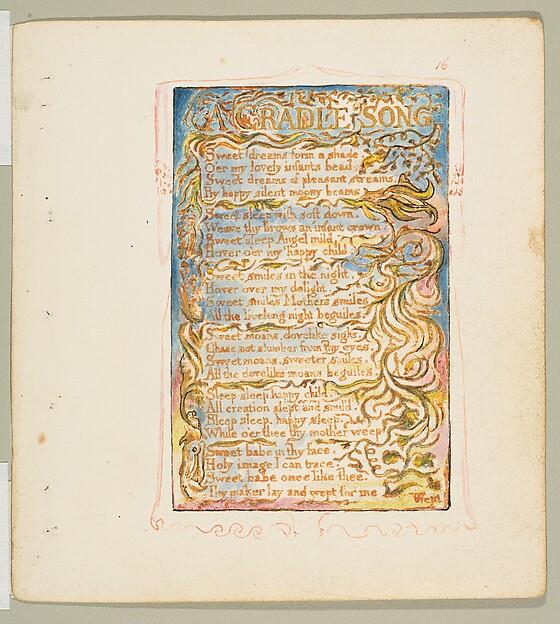 16
A CRADLE SONG
Sweet dreams form a shade
Oer my lovely infants head.
Sweet dreams of pleasant streams,
By happy silent moony beams
Sweet sleep with soft down.
Weave thy brows an infant crown.
Sweet sleep Angel mild,
Hover oer my happy child.
Sweet smiles in the night,
Hover over my delight.
Sweet smiles Mothers smiles
All the livelong night beguiles.
Sweet moans, dovelike sighs,
Chase not slumber from thy eyes,
Sweet moans, sweeter smiles,
All the dovelike moans beguiles.
Sleep sleep happy child.
All creation slept and smil'd.
Sleep sleep, happy sleep,
While oer thee thy mother weep
Sweet babe in thy face,
Holy image I can trace.
Sweet babe once like thee.
Thy maker lay and wept for me
Wept